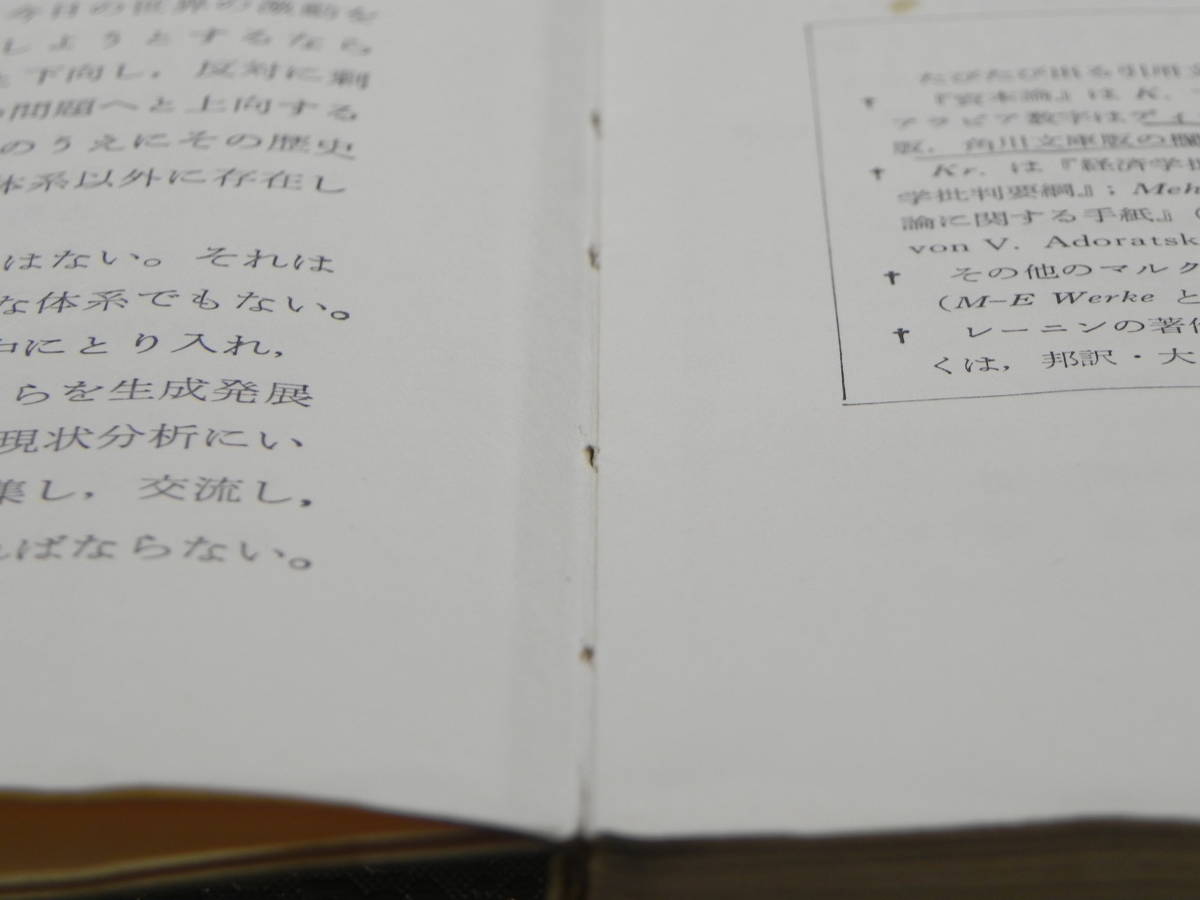 今日の世界の激動を
しようとするなら
下向し，反対に剰
問題へと上向する
のうえにその歴史
体系以外に存在し
はない。それは
な体系でもない。
にとり入れ，
らを生成発展
現状分析にい
集し，交流し，
ればならない。
たびたび出る引用文
† 『資本論』は K.
アラビア数字はディ
版，角川文庫版の欄
† Kr. は『経済学批
学批判要綱』; Meh
論に関する手紙』(
von V. Adoratsk
† その他のマルク
(M–E Werke と
† レーニンの著作
くは，邦訳・大